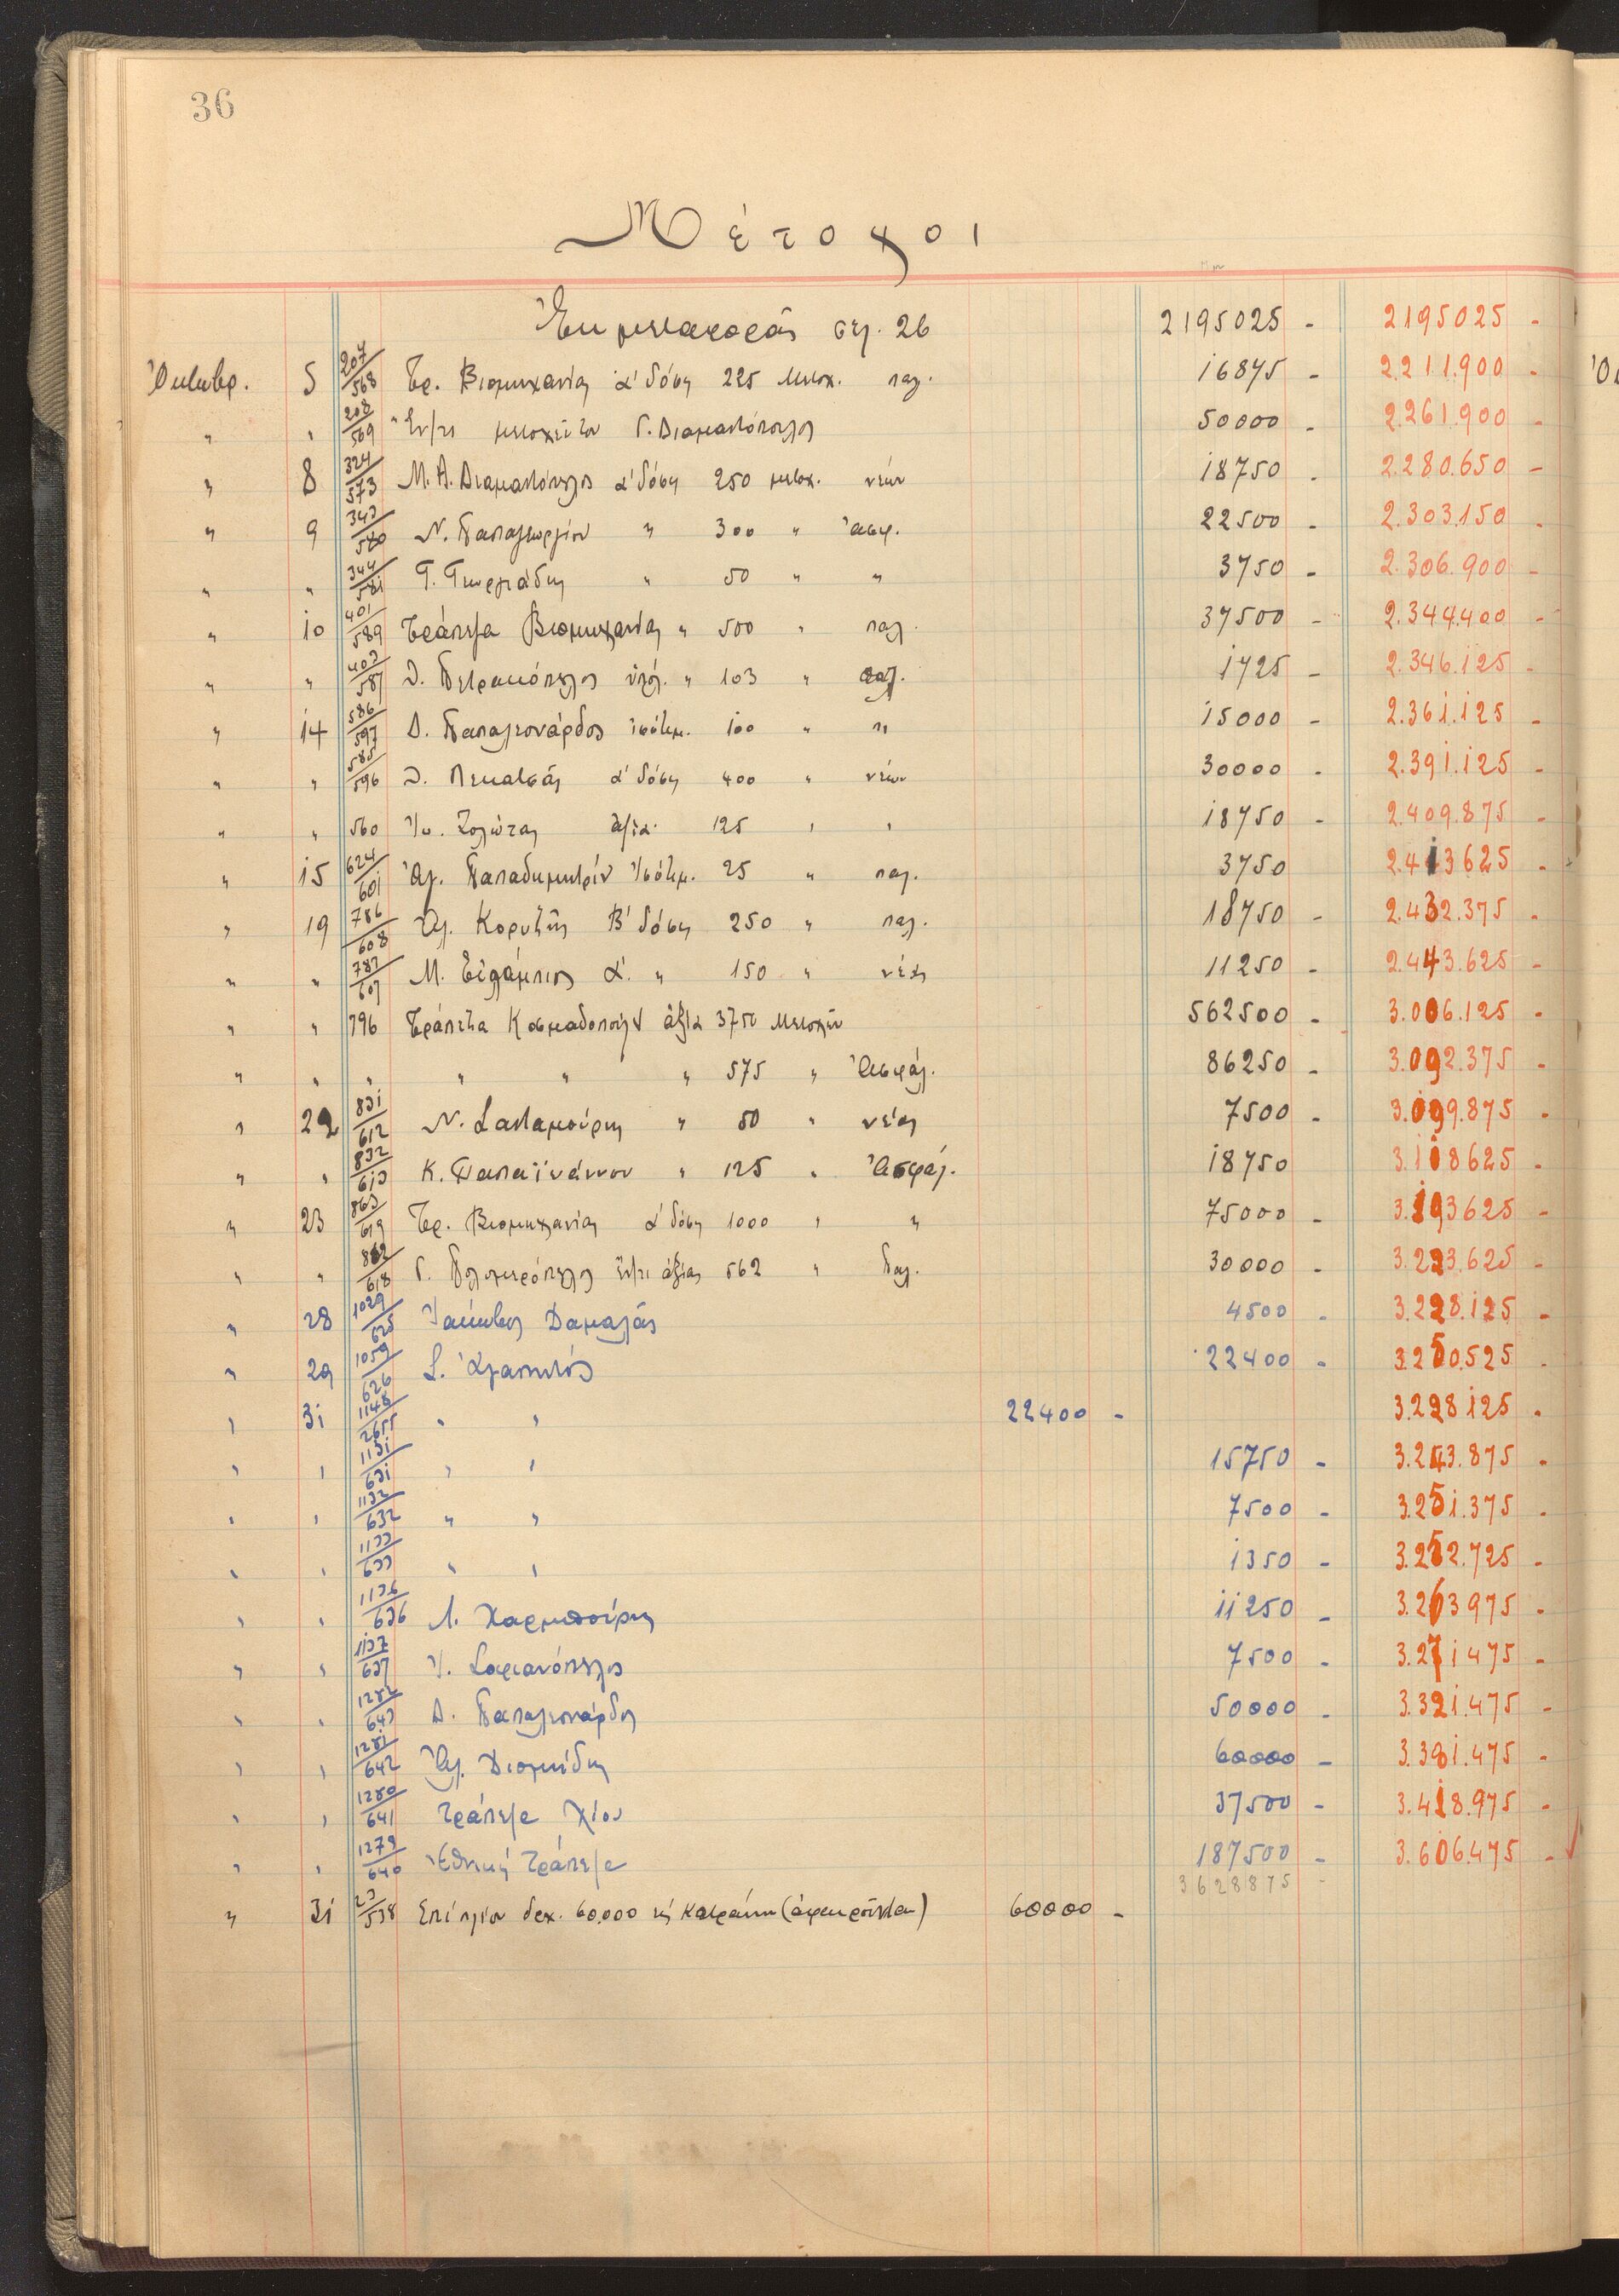 36
Μέτοχοι
Ἐκ μεταφορᾶς σελ. 26 2195025 - 2195025 -
Ὀκτωβρ. 5 207/568 Τρ. Βιομηχανίας α' δόση 225 μετοχ. παλ. 16875 - 2.211.900 -
" " 208/569 Ἔν/τι μετοχῶν του Γ. Διαμαντόπουλος 50000 - 2.261.900 -
" 8 324/573 Μ. Α. Διαμαντόπουλος α' δόση 250 μετοχ. νέων 18750 - 2.280.650 -
" 9 343/580 Ν. Παπαγεωργίου " 300 " Ἀσφ. 22500 - 2.303.150 -
" " 344/581 Γ. Γεωργιάδης " 50 " " 3750 - 2.306.900 -
" 10 401/589 Τράπεζα Βιομηχανίας " 500 " παλ. 37500 - 2.344.400 -
" " 403/587 Δ. Πετρακόπουλος ὑπόλ. " 103 " παλ. 1725 - 2.346.125 -
" 14 586/597 Δ. Παπαλεονάρδος ἰσότιμ. 100 " " 15000 - 2.361.125 -
" " 585/596 Δ. Πεκατσᾶς α' δόση 400 " νέων 30000 - 2.391.125 -
" " 560 Ἰω. Ζολώτας ἀξία 125 " " 18750 - 2.409.875 -
" 15 624/601 Ἀλ. Παπαδημητρίου Ἰσότιμ. 25 " παλ. 3750 2.413625 -
" 19 786/608 Ἀλ. Κορυζῆς Β' δόση 250 " παλ. 18750 - 2.432.375 -
" " 787/607 Μ. Εὐλάμπιος α'. " 150 " νέας 11250 - 2.443.625 -
" " 796 Τράπεζα Κοσμαδοπούλου ἀξία 3750 Μετοχῶν 562500 - 3.006.125 -
" " " " " " 575 " Ἀσφάλ. 86250 - 3.092.375 -
" 22 831/612 Ν. Σανταμούρης " 50 " νέας 7500 - 3.099.875 -
" " 832/613 Κ. Παπαϊωάννου " 125 " Ἀσφάλ. 18750 3.118625 -
" 23 863/619 Τρ. Βιομηχανίας α' δόση 1000 " " 75000 - 3.193625 -
" " 862/618 Γ. ἔν/τι ἀξίας 562 " Παλ. 30000 - 3.223.625 -
" 28 1029/625 Ἰάκωβος Δαμαλᾶς 4500 - 3.228.125 -
" 29 1059/626 Σ. Ἀγαπητός 22400 - 3.250.525 -
" 31 1148/2655 " " 22400 - 3.228125 -
" " 1131/631 " " 15750 - 3.243.875 -
" " 1132/632 " " 7500 - 3.251.375 -
" " 1133/633 " " 1350 - 3.252.725 -
" " 1136/636 Λ. Χαρμπούρης 11250 - 3.263975 -
" " 1137/637 Ἰ. Σοφιανόπουλος 7500 - 3.271475 -
" " 1282/643 Δ. Παπαλεονάρδος 50000 - 3.321.475 -
" " 1281/642 Ἀλ. Διομήδης 60000 - 3.381.475 -
" " 1280/641 Τράπεζα Χίου 37500 - 3.418.975 -
" " 1279/640 Ἐθνική Τράπεζα 187500 - 3.606.475 -
3628875 -
" 31 23/538 Ἐπί πλέον δρχ. 60.000 (ἀφαιροῦνται) 60000 -